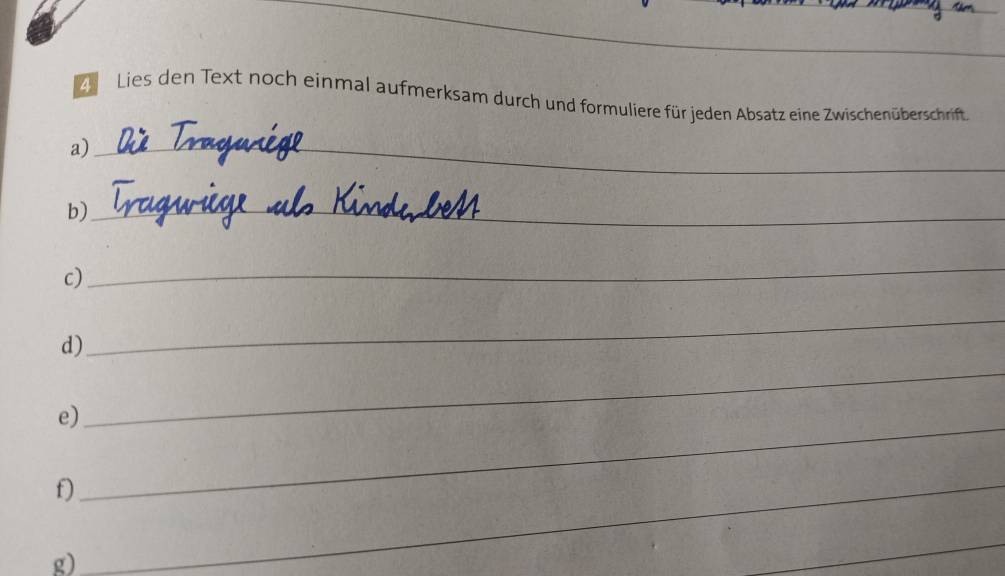 4 Lies den Text noch einmal aufmerksam durch und formuliere für jeden Absatz eine Zwischenüberschrift.
a) Die Tragwiege
b) Tragwiege als Kinderbett
c)
d)
e)
f)
g)